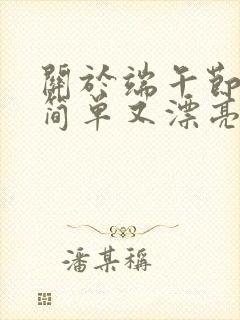 關於端午節
简单又漂亮
潘某稱